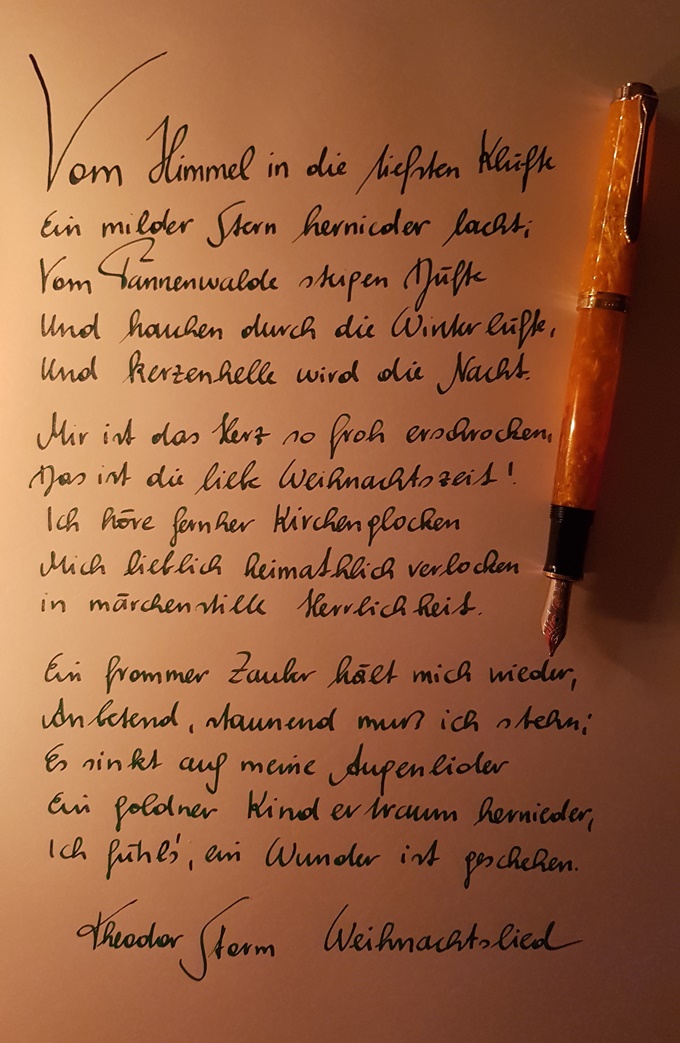 Vom Himmel in die tiefsten Klüfte
Ein milder Stern hernieder lacht;
Vom Tannenwalde steigen Düfte
Und hauchen durch die Winterlüfte,
Und kerzenhelle wird die Nacht.
Mir ist das Herz so froh erschrocken,
Das ist die liebe Weihnachtszeit!
Ich höre fernher Kirchenglocken
Mich lieblich heimathlich verlocken
in märchenstille Herrlichkeit.
Ein frommer Zauber hält mich wieder,
Anbetend, staunend muß ich stehn;
Es sinkt auf meine Augenlider
Ein goldner Kindertraum hernieder,
Ich fühls', ein Wunder ist geschehen.
Theodor Storm Weihnachtslied